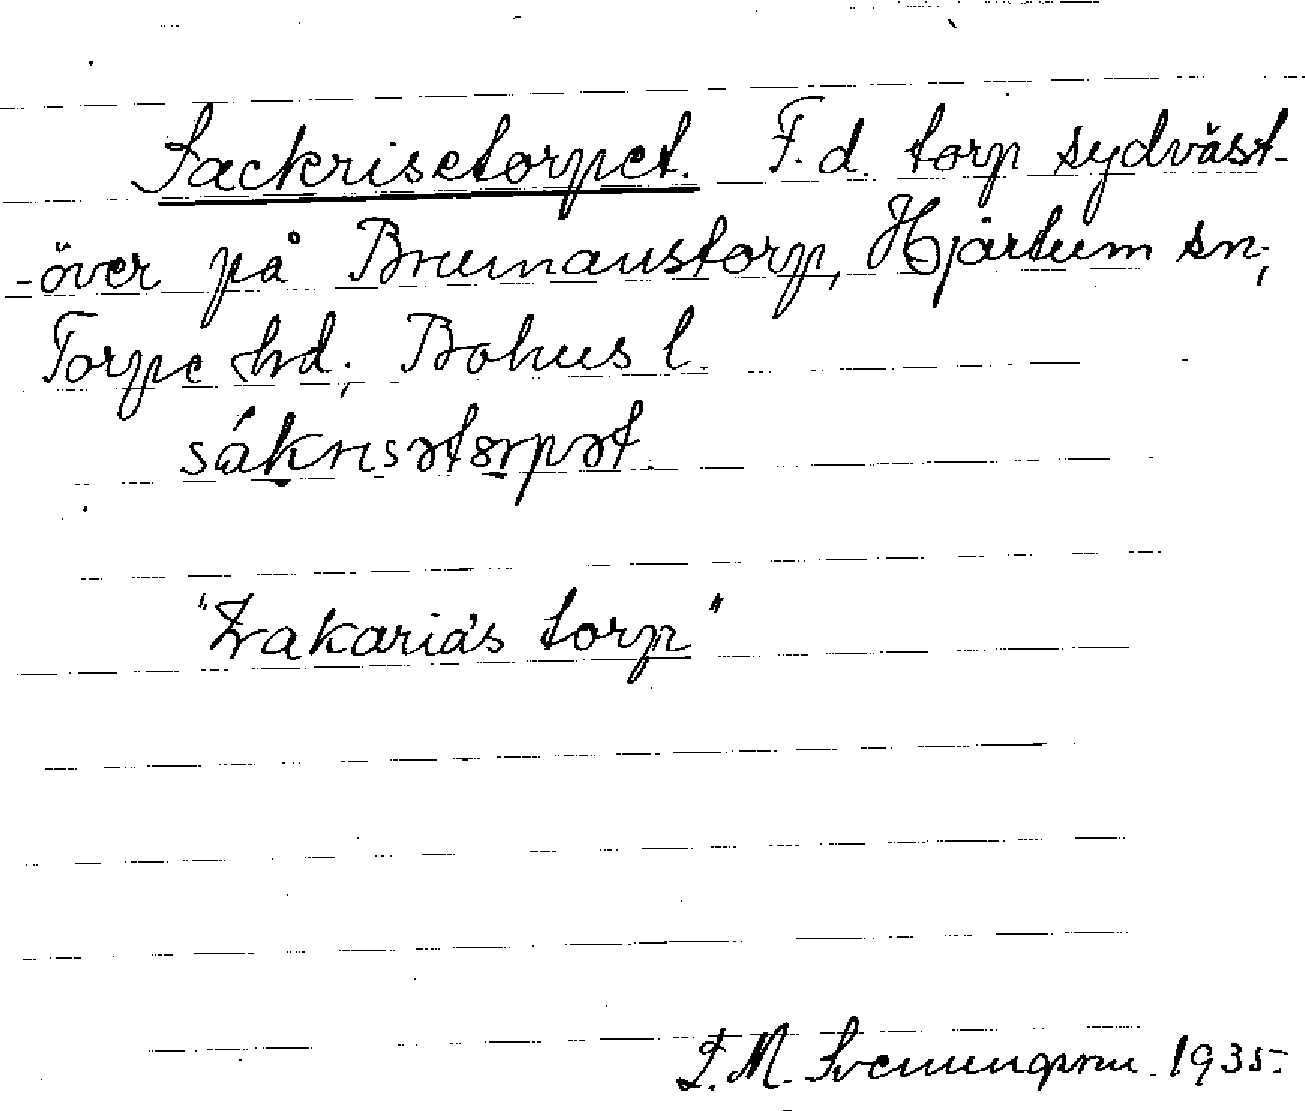 Sackrisetorpet. F.d. torp sydväst-
-över på Brumanstorp, Hjärtum sn;
Torpe hd; Bohus l.
sákrɪsətɔrpət.
"Zakarias torp"
M. 1935.